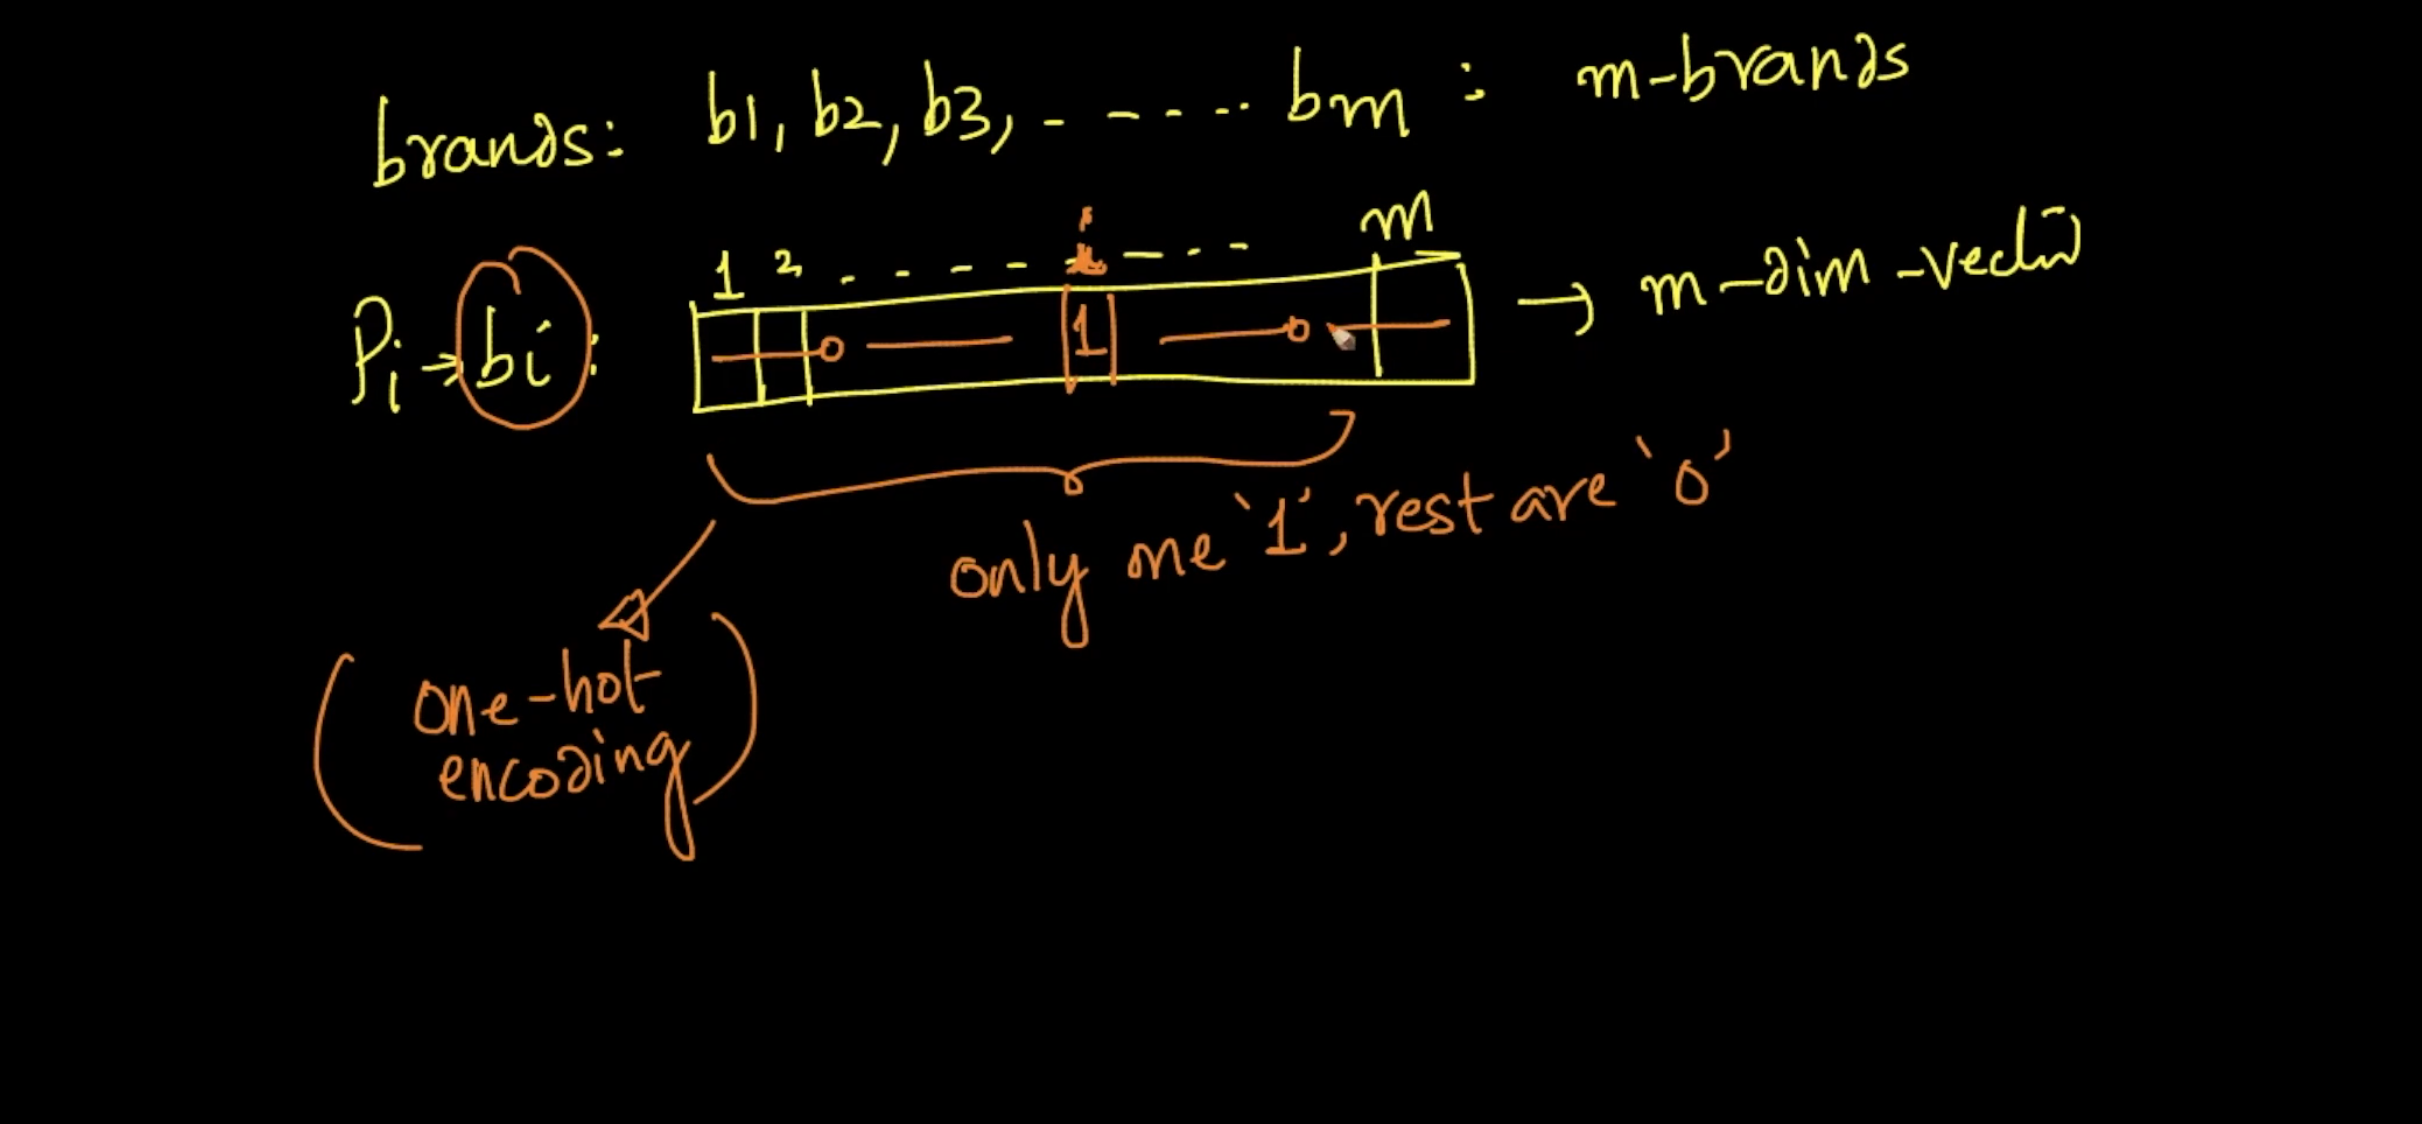 brands: b1, b2, b3, - - - - - - bm : m-brands
1 2 . - - - - i - - - m
Pi → bi : 0 — 1 — 0 → m-dim-vector
only one '1', rest are '0'
one-hot
encoding